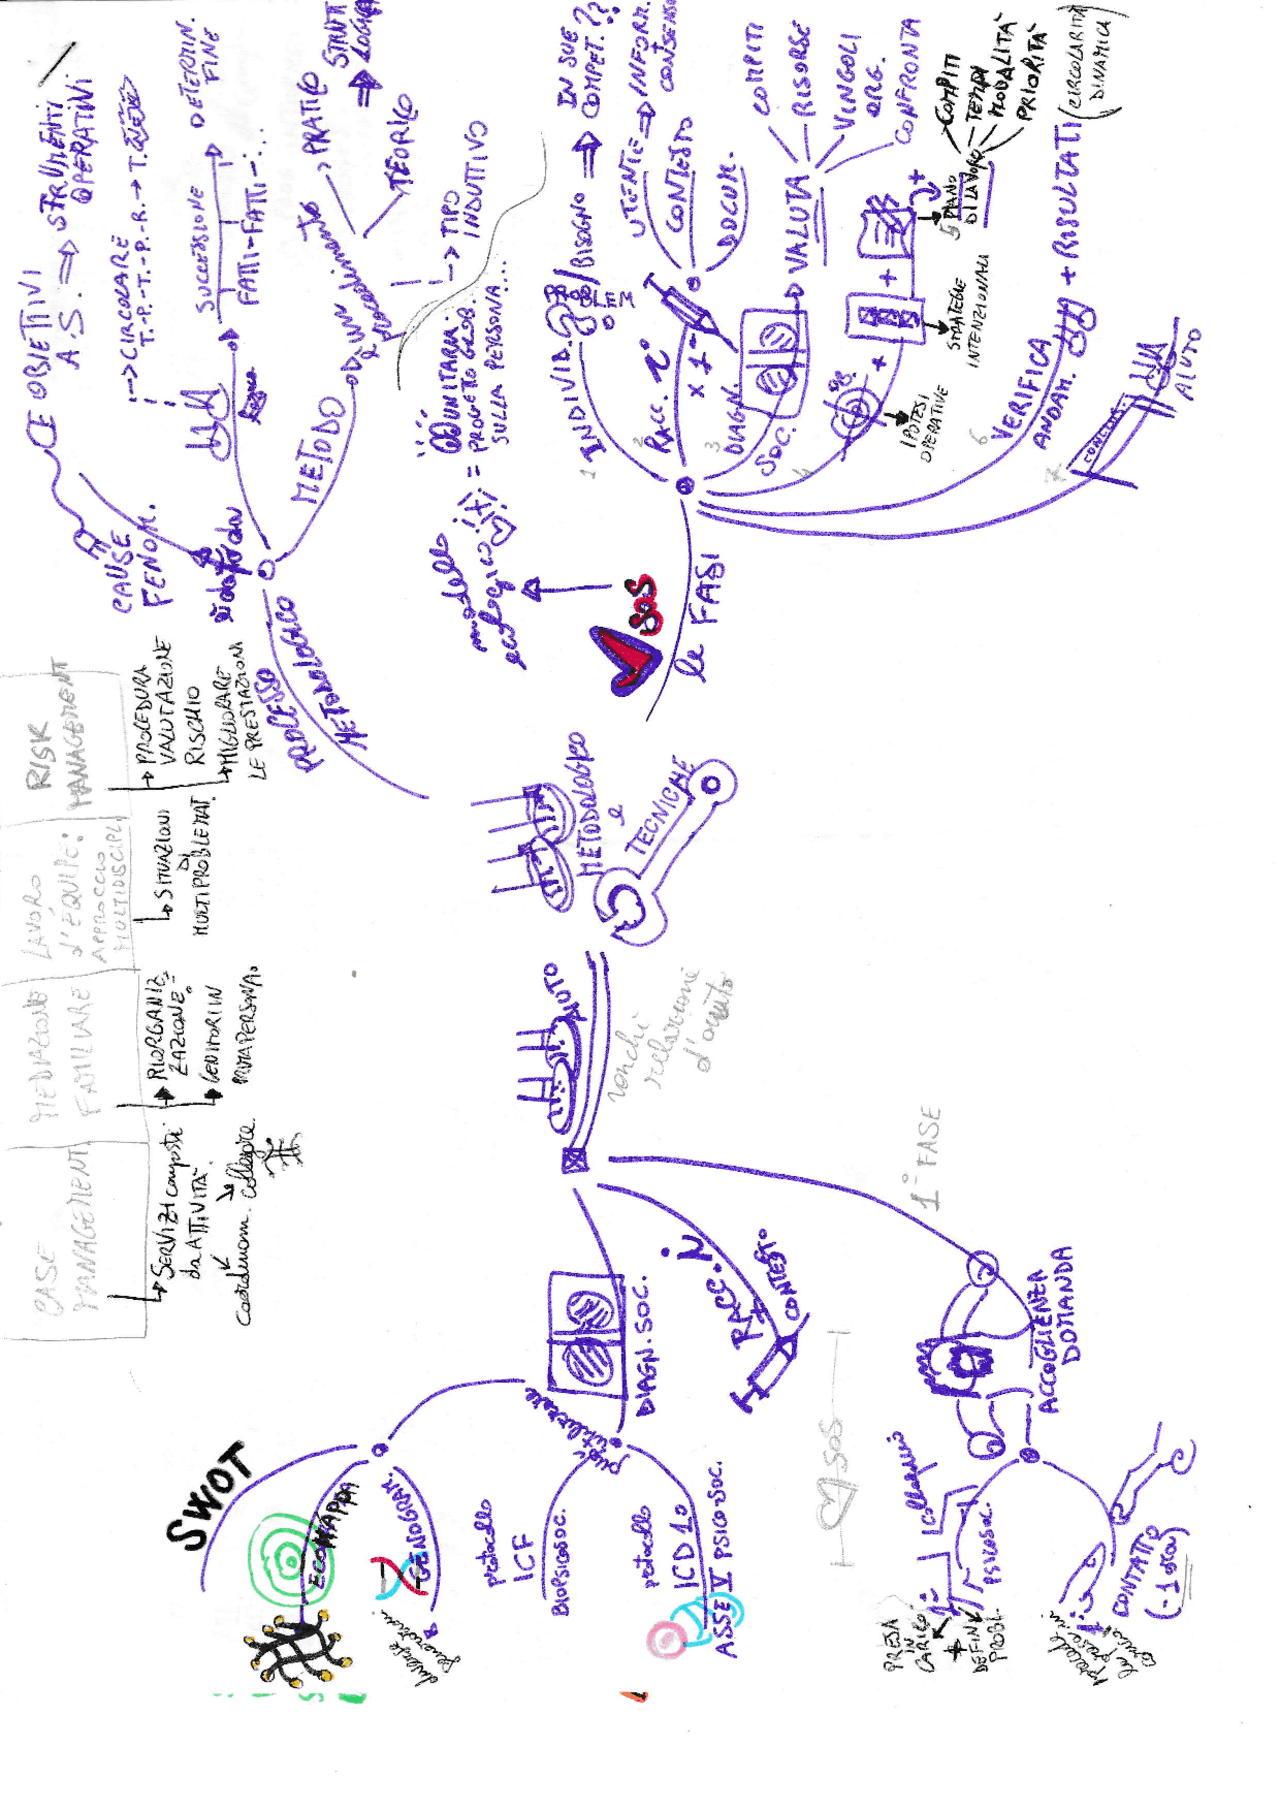 OBIETTIVI
A.S. => STRUMENTI
OPERATIVI
CAUSE
FENOM.
CIRCOLARE
T.-P.-T.-P.-R.-> T.
SUCCESSIONE
DETERMIN.
FINE
FATTI-FATTI-...
METODO
PRATICO
TEORICO
UNITARIA
PROGETTO GLOB.
SULLA PERSONA...
TIPO
INDUTTIVO
PROCESSO
METODOLOGICO
modello
ecologico
SOS
le FASI
1 INDIVID.
PROBLEM
/BISOGNO
IN SUE
COMPET. ??
2 RACC. i°
x 1
UTENTE => INFORM.
CONSENSO
CONTESTO
DOCUM.
3 DIAGN.
SOC.
VALUTA
COMPITI
RISORSE
VINCOLI
ORG.
CONFRONTA
4
IPOTESI
OPERATIVE
STRATEGIE
INTENZIONALI
5 PIANO
DI LAVORO
COMPITI
TEMPI
MODALITÀ
PRIORITÀ
6 VERIFICA
ANDAM.
+ RISULTATI
(CIRCOLARITÀ
DINAMICA
7
AIUTO
RISK
MANAGEMENT
PROCEDURA
VALUTAZIONE
RISCHIO
MIGLIORARE
LE PRESTAZIONI
LAVORO
d'EQUIPE:
APPROCCIO
MULTIDISCIPL.
SITUAZIONI
DI
MULTIPROBLEMAT.
MEDIAZIONE
FAMILIARE
RIORGANIZ-
ZAZIONE
GENITORI IN
CASE
MANAGEMENT
SERVIZI composti
da ATTIVITÀ
METODOLOGICO
e
TECNICHE
AIUTO
relazione
d'aiuto
DIAGN. SOC.
RACC. i°
+
CONTESTO
1° FASE
ACCOGLIENZA
DOMANDA
SOS
SWOT
ECOMAPPA
GENOGRAM.
protocollo
ICF
BIOPSICOSOC.
protocollo
ICD 10
ASSE V PSICOSOC.
PSICOSOC.
PRESA
IN
CARICO
+
DEFIN.
PROBL.
CONTATTO